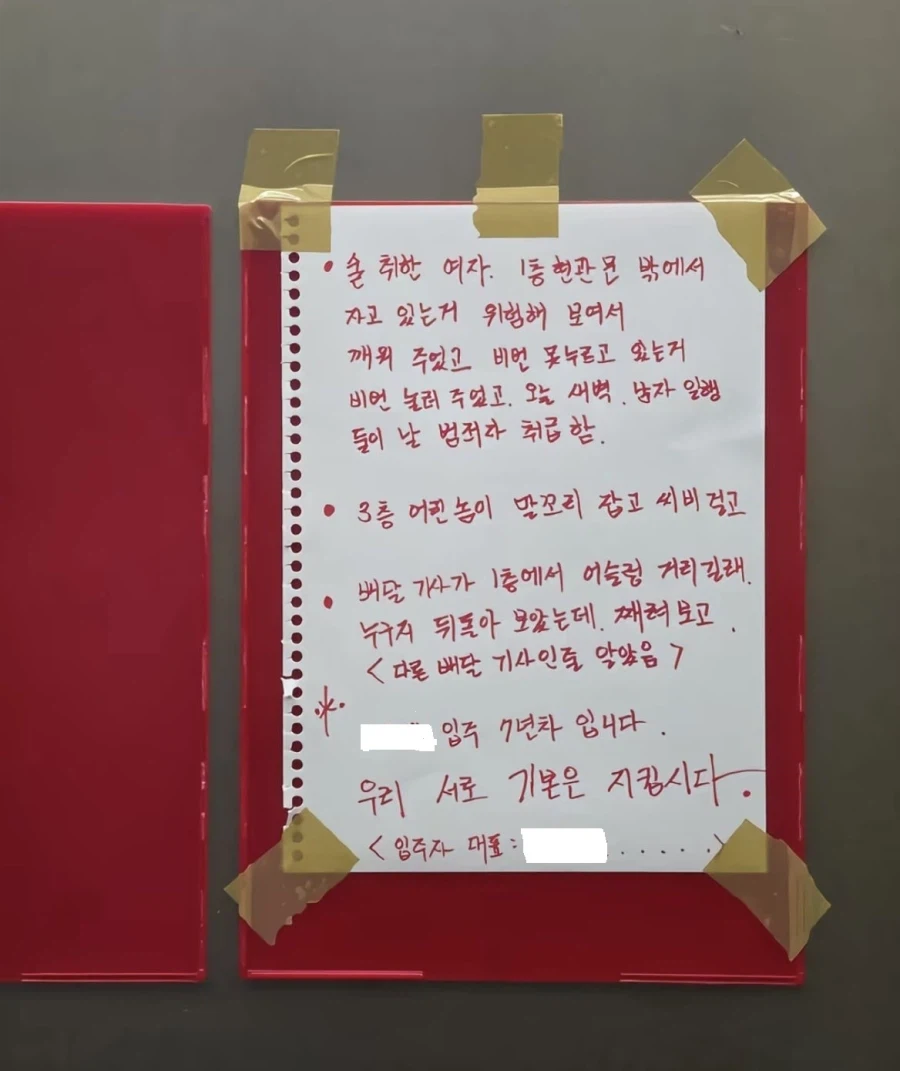 • 술 취한 여자. 1층 현관문 밖에서
자고 있는거 위험해 보여서
깨워 주었고 비번 못누르고 있는거
비번 눌러 주었고. 오늘 새벽. 남자 일행
들이 날 범죄자 취급함.
• 3층 어린놈이 말꼬리 잡고 씨비걸고
• 배달 기사가 1층에서 어슬렁 거리길래.
누구지 뒤돌아 보았는데. 째려보고.
< 다른 배달 기사인줄 알았음 >
※
입주 7년차 입니다.
우리 서로 기본은 지킵시다.
< 입주자 대표: . . . . . >